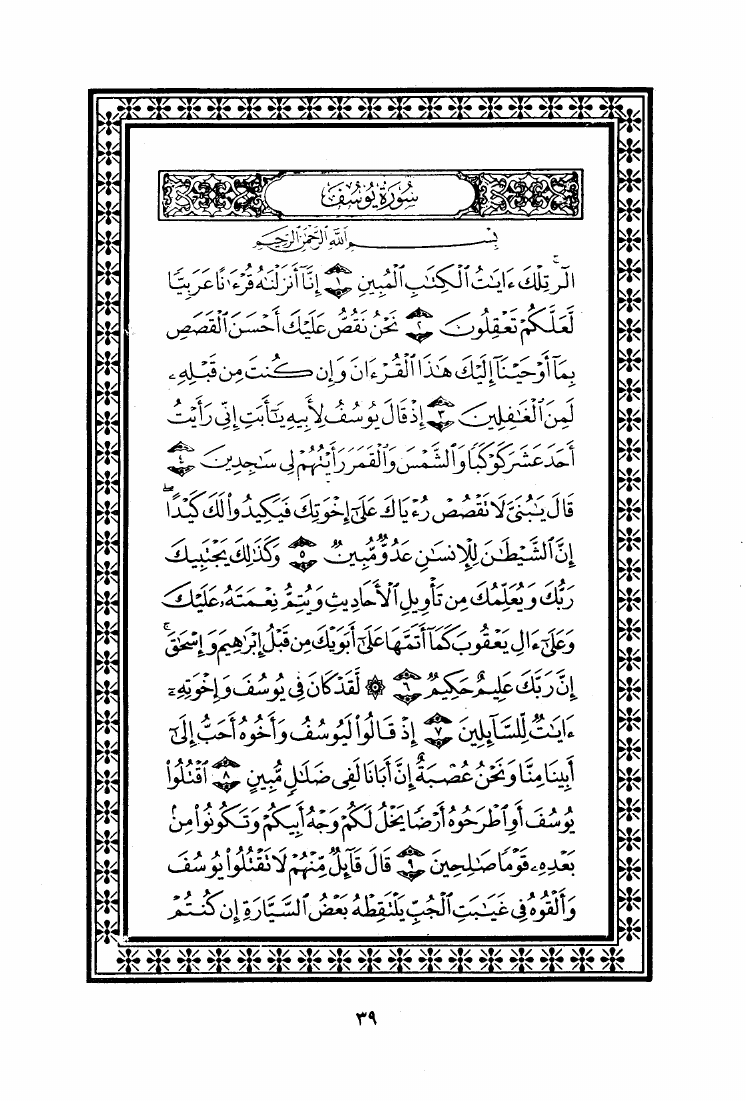 سُورَةُ يُوسُفَ
بِسْمِ ٱللَّهِ ٱلرَّحْمَٰنِ ٱلرَّحِيمِ
الٓر ۚ تِلْكَ ءَايَٰتُ ٱلْكِتَٰبِ ٱلْمُبِينِ ١ إِنَّآ أَنزَلْنَٰهُ قُرْءَٰنًا عَرَبِيًّا
لَّعَلَّكُمْ تَعْقِلُونَ ٢ نَحْنُ نَقُصُّ عَلَيْكَ أَحْسَنَ ٱلْقَصَصِ
بِمَآ أَوْحَيْنَآ إِلَيْكَ هَٰذَا ٱلْقُرْءَانَ وَإِن كُنتَ مِن قَبْلِهِۦ
لَمِنَ ٱلْغَٰفِلِينَ ٣ إِذْ قَالَ يُوسُفُ لِأَبِيهِ يَٰٓأَبَتِ إِنِّى رَأَيْتُ
أَحَدَ عَشَرَ كَوْكَبًا وَٱلشَّمْسَ وَٱلْقَمَرَ رَأَيْتُهُمْ لِى سَٰجِدِينَ ٤
قَالَ يَٰبُنَىَّ لَا تَقْصُصْ رُءْيَاكَ عَلَىٰٓ إِخْوَتِكَ فَيَكِيدُوا۟ لَكَ كَيْدًا ۖ
إِنَّ ٱلشَّيْطَٰنَ لِلْإِنسَٰنِ عَدُوٌّ مُّبِينٌ ٥ وَكَذَٰلِكَ يَجْتَبِيكَ
رَبُّكَ وَيُعَلِّمُكَ مِن تَأْوِيلِ ٱلْأَحَادِيثِ وَيُتِمُّ نِعْمَتَهُۥ عَلَيْكَ
وَعَلَىٰٓ ءَالِ يَعْقُوبَ كَمَآ أَتَمَّهَا عَلَىٰٓ أَبَوَيْكَ مِن قَبْلُ إِبْرَٰهِيمَ وَإِسْحَٰقَ ۚ
إِنَّ رَبَّكَ عَلِيمٌ حَكِيمٌ ٦ ۞ لَّقَدْ كَانَ فِى يُوسُفَ وَإِخْوَتِهِۦٓ
ءَايَٰتٌ لِّلسَّآئِلِينَ ٧ إِذْ قَالُوا۟ لَيُوسُفُ وَأَخُوهُ أَحَبُّ إِلَىٰٓ
أَبِينَا مِنَّا وَنَحْنُ عُصْبَةٌ إِنَّ أَبَانَا لَفِى ضَلَٰلٍ مُّبِينٍ ٨ ٱقْتُلُوا۟
يُوسُفَ أَوِ ٱطْرَحُوهُ أَرْضًا يَخْلُ لَكُمْ وَجْهُ أَبِيكُمْ وَتَكُونُوا۟ مِنۢ
بَعْدِهِۦ قَوْمًا صَٰلِحِينَ ٩ قَالَ قَآئِلٌ مِّنْهُمْ لَا تَقْتُلُوا۟ يُوسُفَ
وَأَلْقُوهُ فِى غَيَٰبَتِ ٱلْجُبِّ يَلْتَقِطْهُ بَعْضُ ٱلسَّيَّارَةِ إِن كُنتُمْ
٣٩